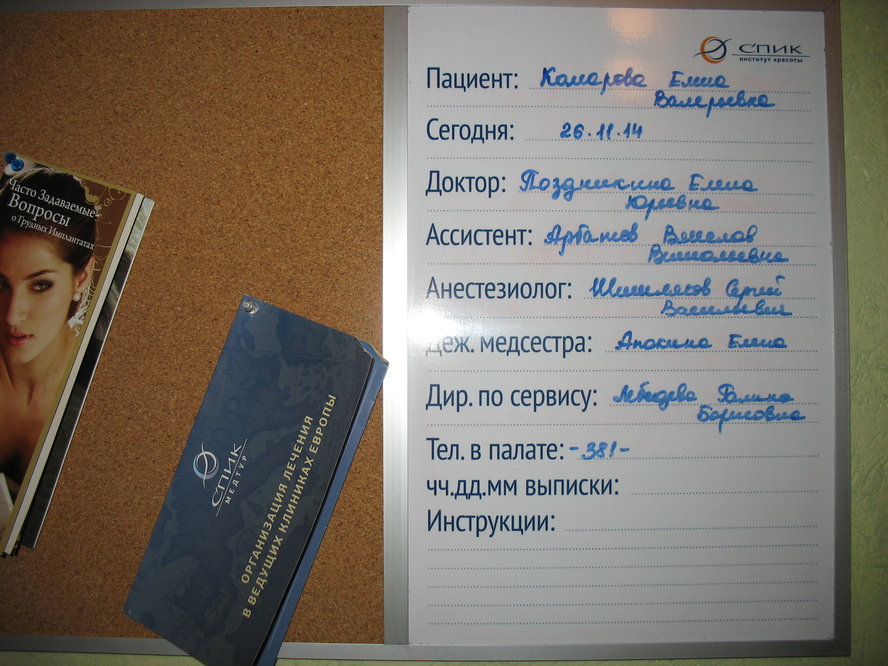 Часто Задаваемые
Вопросы
о Грудных Имплантатах
СПИК
МЕДТУР
ОРГАНИЗАЦИЯ ЛЕЧЕНИЯ
В ВЕДУЩИХ КЛИНИКАХ ЕВРОПЫ
СПИК
институт красоты
Пациент: Комарова Елена
Валерьевна
Сегодня: 26.11.14
Доктор: Позднякина Елена
Юрьевна
Ассистент:
Анестезиолог: Сергей
Васильевич
Деж. медсестра: Апокина Елена
Дир. по сервису: Лебедева Галина
Борисовна
Тел. в палате: -381-
чч.дд.мм выписки:
Инструкции: